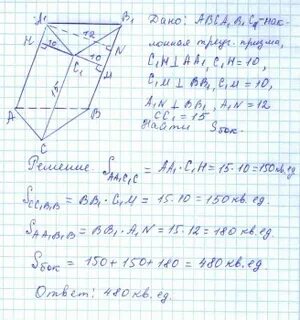 A₁ B₁
H 12 N
10 10
C₁ M
15
A B
C
Дано: ABCA₁B₁C₁-нак-
лонная треуг. призма,
C₁H⊥AA₁, C₁H=10,
C₁M⊥BB₁, C₁M=10,
A₁N⊥BB₁, A₁N=12
CC₁=15
Найти Sбок.
Решение. S AA₁C₁C = AA₁·C₁H=15·10=150кв.ед.
S CC₁B₁B = BB₁·C₁M=15·10=150кв.ед.
S AA₁B₁B = BB₁·A₁N=15·12=180 кв.ед.
Sбок = 150+150+180=480кв.ед.
Ответ: 480 кв.ед.